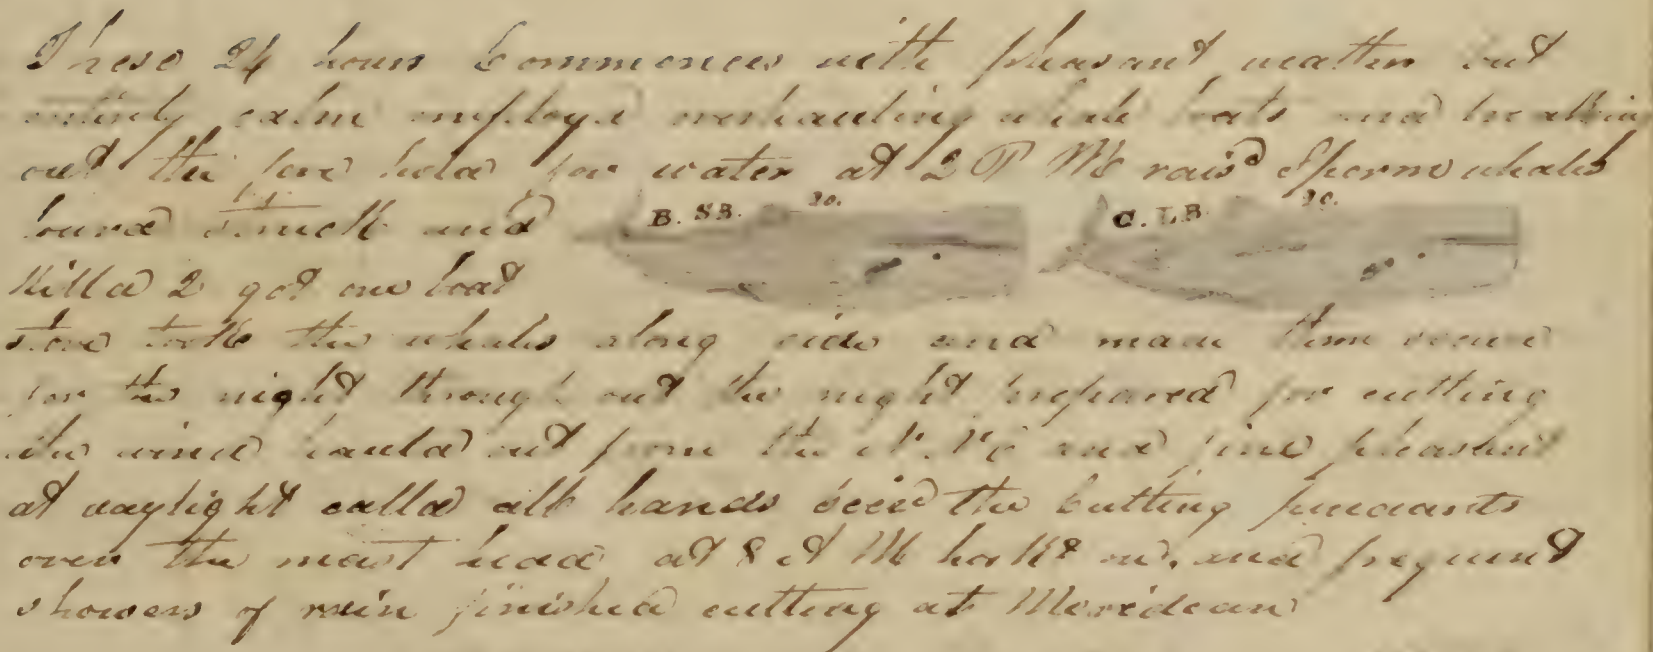 These 24 hours Commences with pleasant weather but
entirely calm employd overhauling whale boats and breaking
out the fore hold for water at 2 P M rais'd Sperm whales
lowred struck and
B. SB. 20.
C. LB. 20.
Killd 2 got one boat
stove took the whales along side and made them secure
for the night through out the night prepared for cutting
the wind hauld out from the N.E and fine pleasant
at daylight calld all hands the Cutting pendants
over the mast head at 8 A M hook'd on, and frequent
showers of rain finished cutting at Meridean